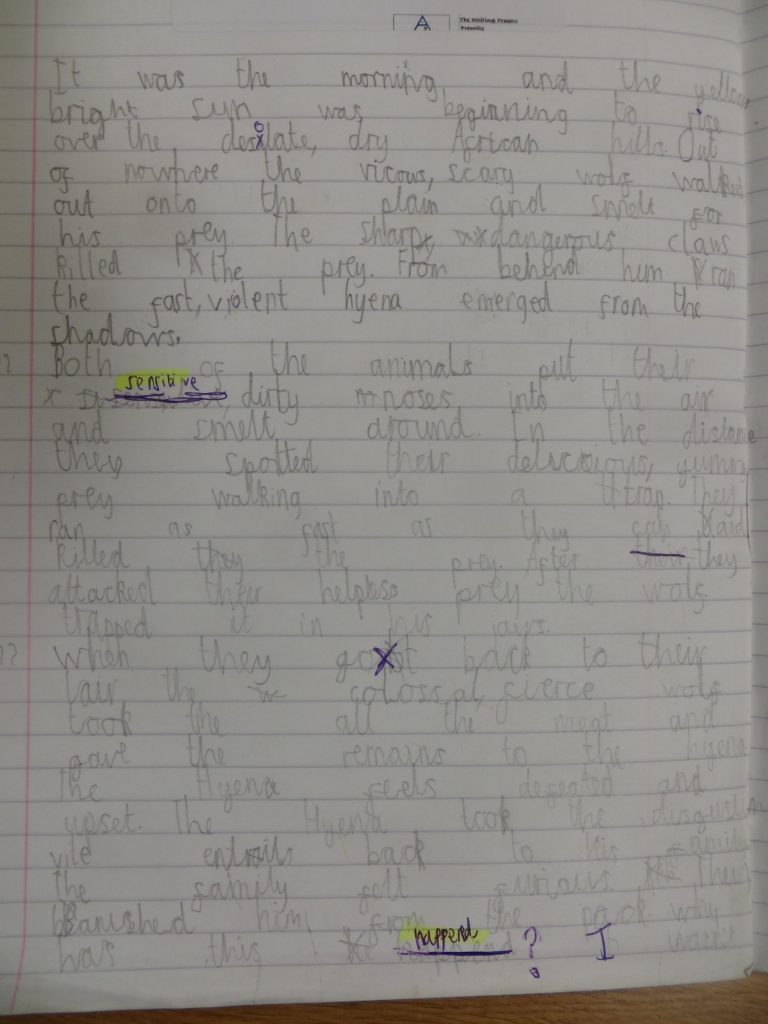 The Writing Process
Prewrite
It was the morning, and the yellow
bright sun was beginning to rise
over the desolate, dry African hills. Out
of nowhere the vicous, scary wolf walked
out onto the plain and smelt for
his prey. The sharp, dangerous claws
killed the prey. From behind him ran
the fast, violent hyena emerged from the
shadows.
Both of the animals put their
sensitive, dirty noses into the air
and smelt around. In the distane
they spotted their delicious, yummy
prey walking into a trap. They
ran as fast as they can and
killed they the prey. After they
attacked their helpless prey the wolf
trapped it in his jays.
When they got back to their
lair the colossal, fierce wolf
took the all the meat and
gave the remains to the hyena
The Hyena feels defeated and
upset. The Hyena took the
vile entrails back to his family
the family felt furious. They
banished him from the pack. why
has this happend ? I wasn't